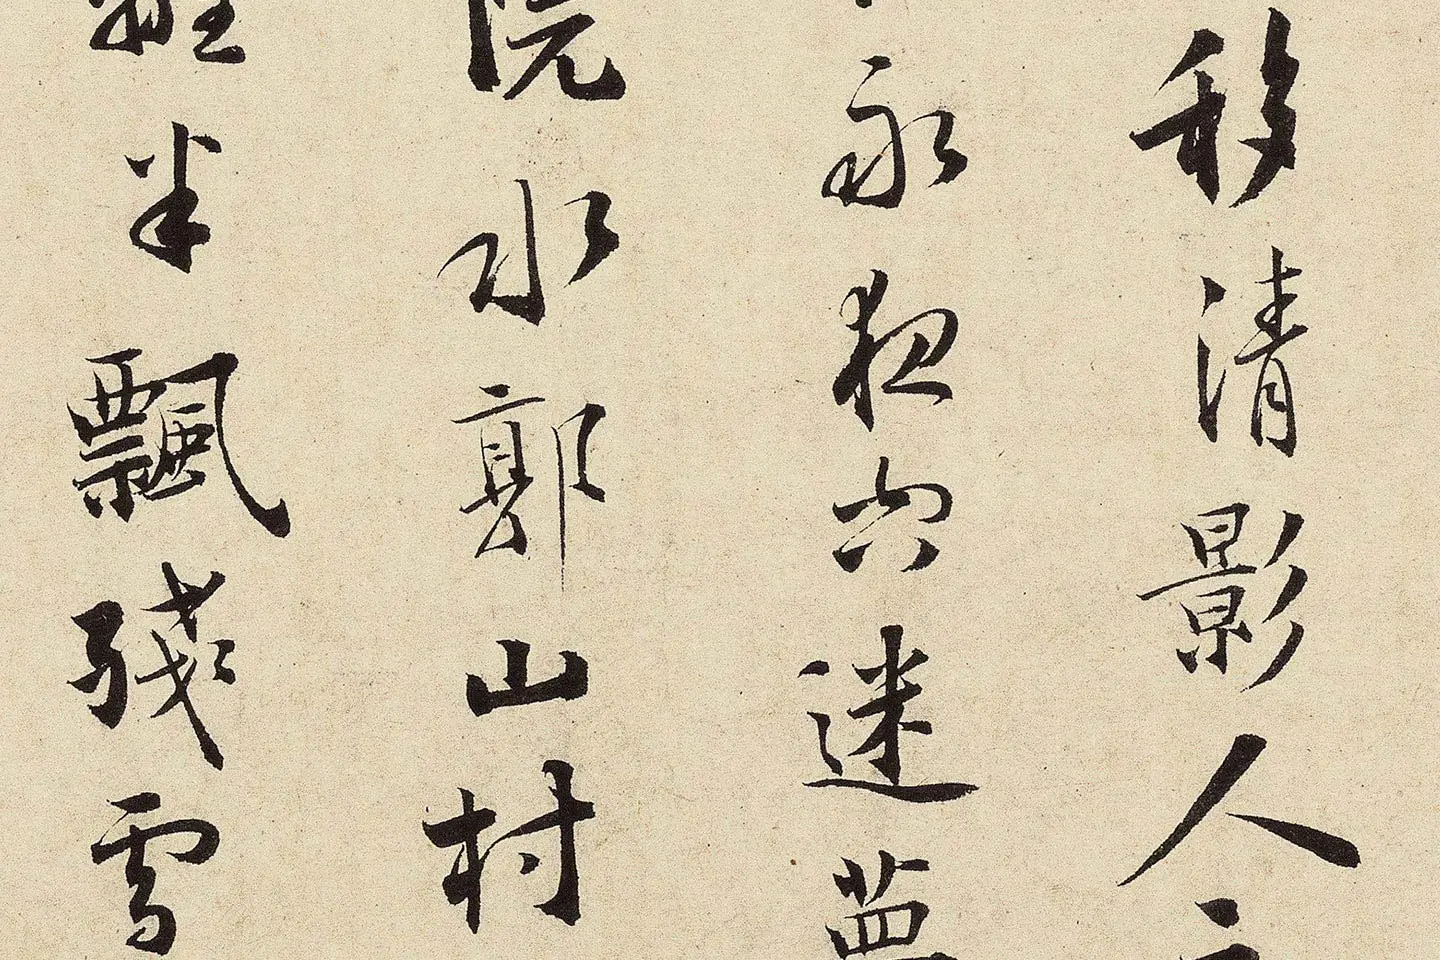 移清影人
永夜穴迷
院水郭山村
半飄殘雪